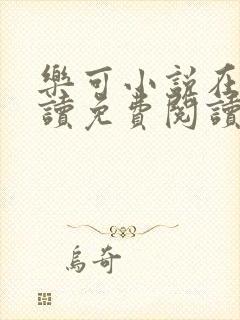 樂可小說在
讀免費閱讀
烏奇